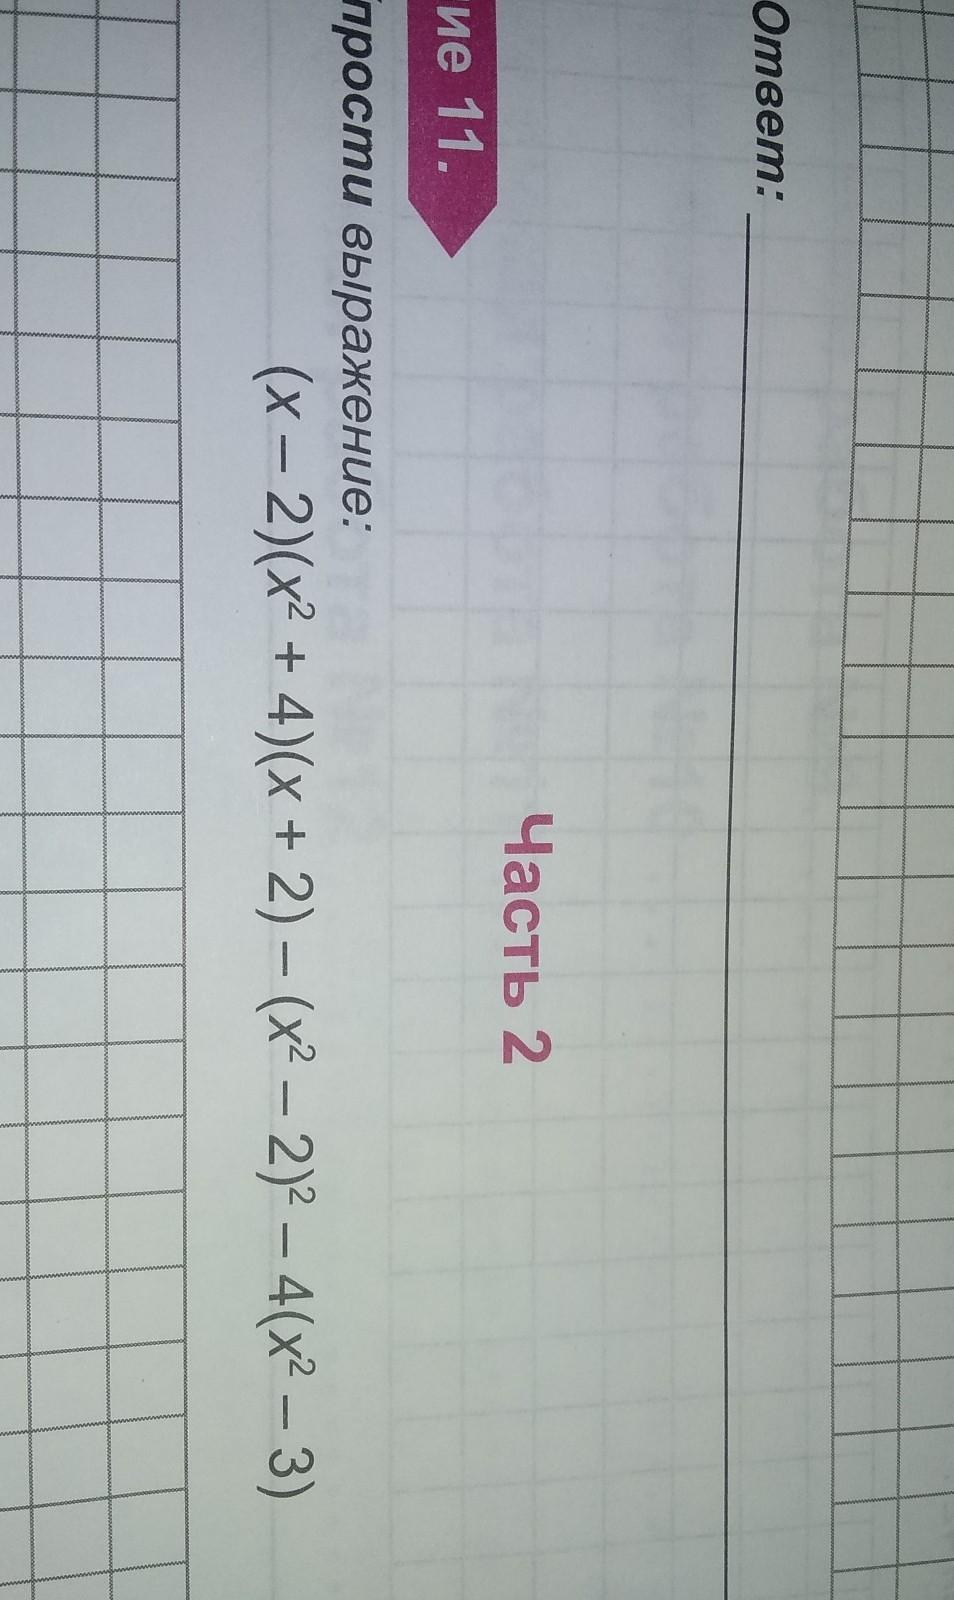 Ответ:
Часть 2
ие 11.
прости выражение:
(x – 2)(x² + 4)(x + 2) – (x² – 2)² – 4(x² – 3)